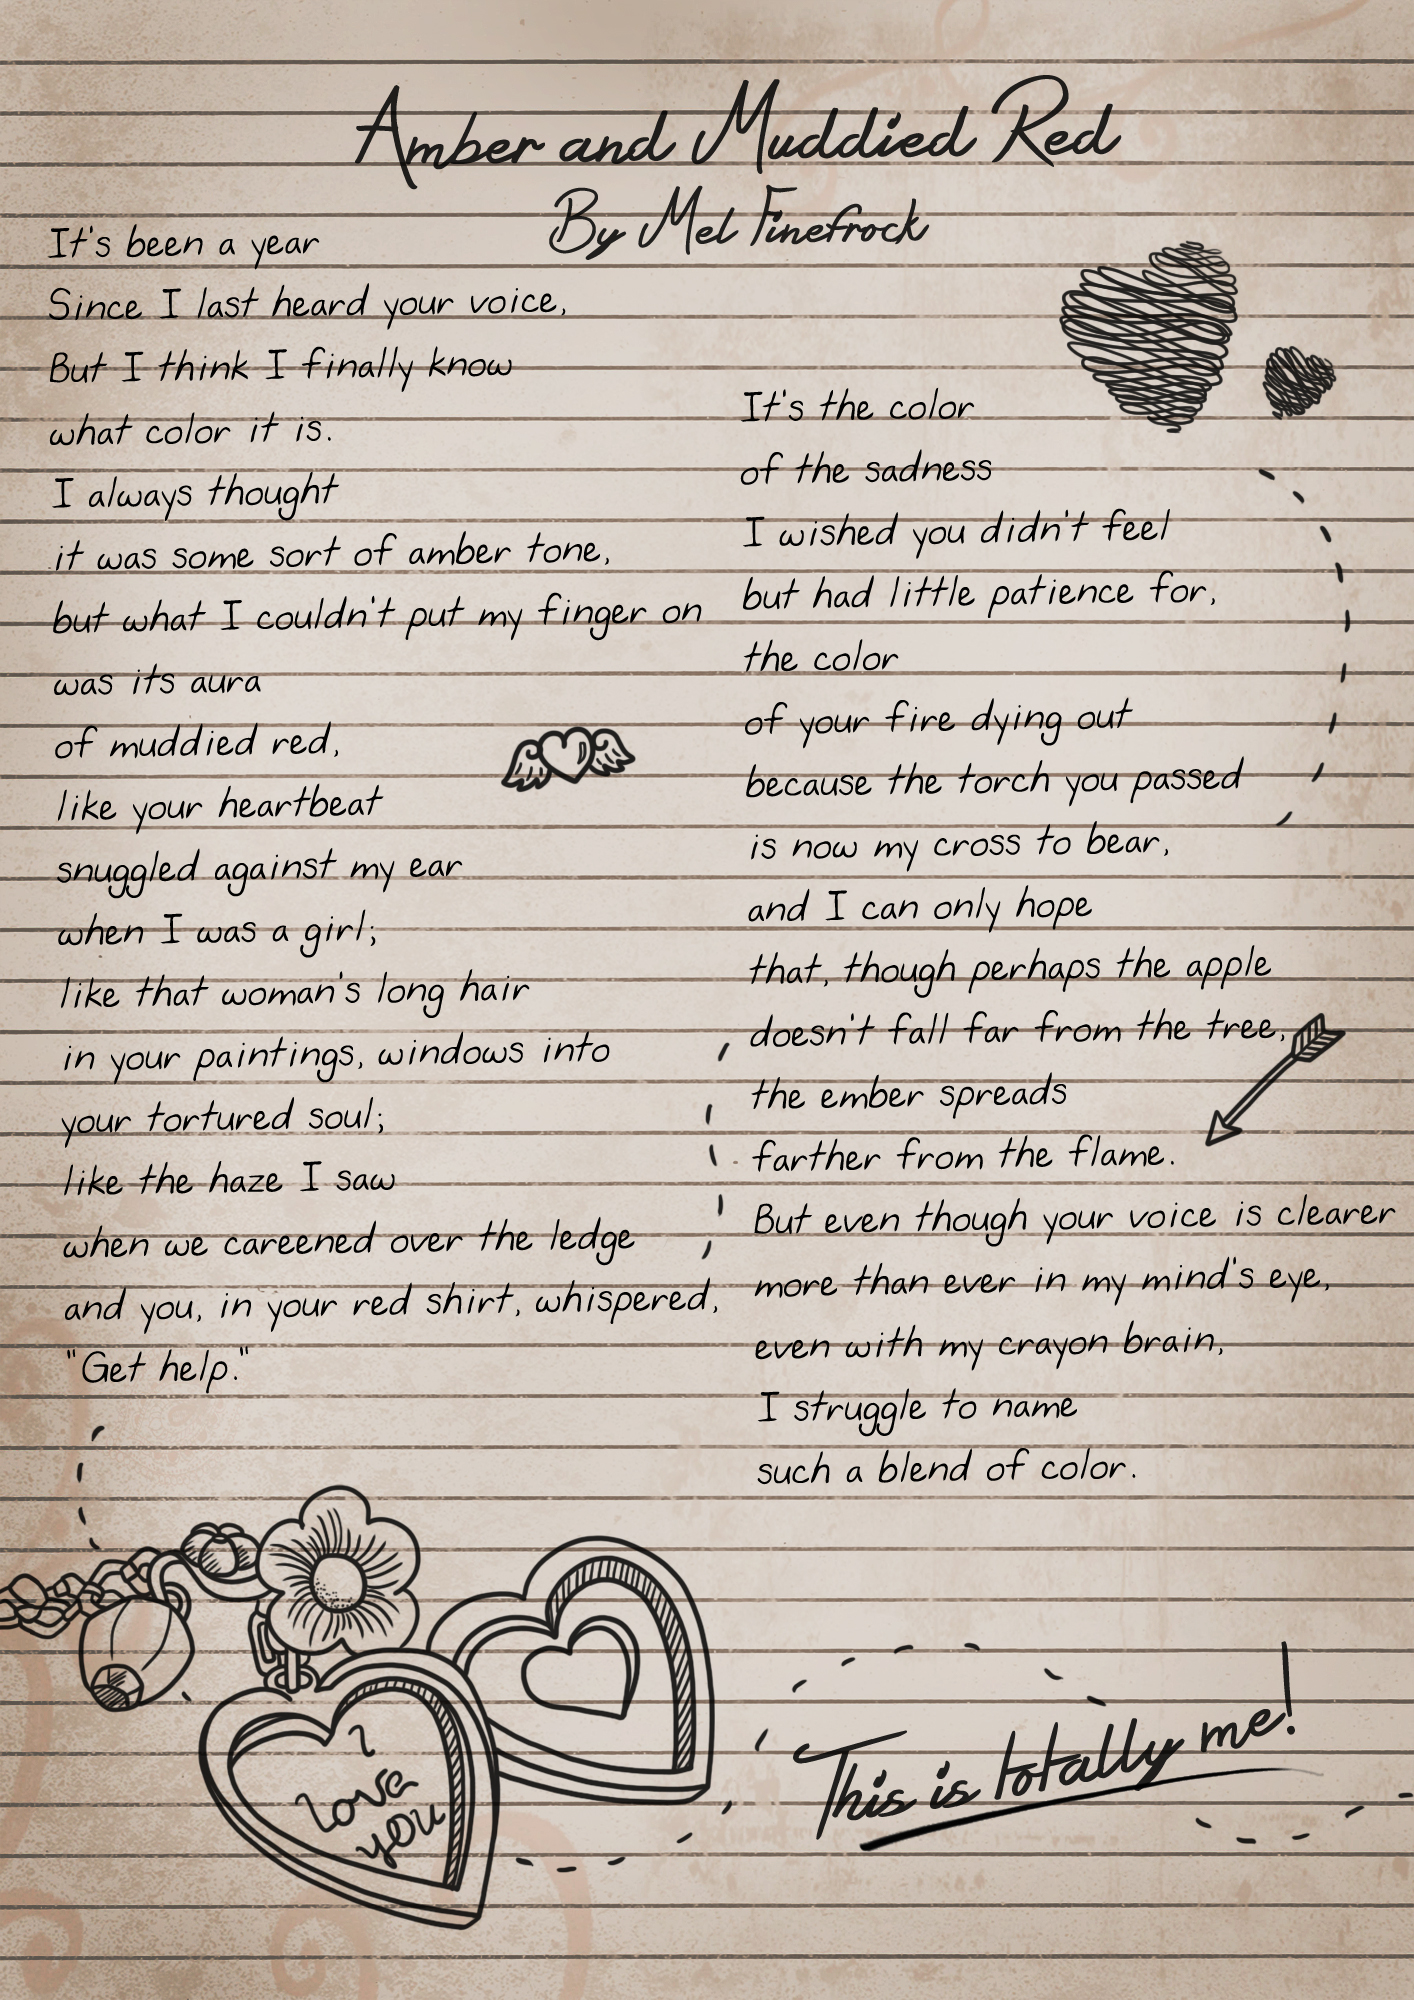 Amber and Muddied Red
By Mel Finefrock
It's been a year
Since I last heard your voice,
But I think I finally know
what color it is.
I always thought
it was some sort of amber tone,
but what I couldn't put my finger on
was its aura
of muddied red,
like your heartbeat
snuggled against my ear
when I was a girl;
like that woman's long hair
in your paintings, windows into
your tortured soul;
like the haze I saw
when we careened over the ledge
and you, in your red shirt, whispered,
"Get help."
It's the color
of the sadness
I wished you didn't feel
but had little patience for,
the color
of your fire dying out
because the torch you passed
is now my cross to bear,
and I can only hope
that, though perhaps the apple
doesn't fall far from the tree,
the ember spreads
farther from the flame.
But even though your voice is clearer
more than ever in my mind's eye,
even with my crayon brain,
I struggle to name
such a blend of color.
I
love
you
This is totally me!